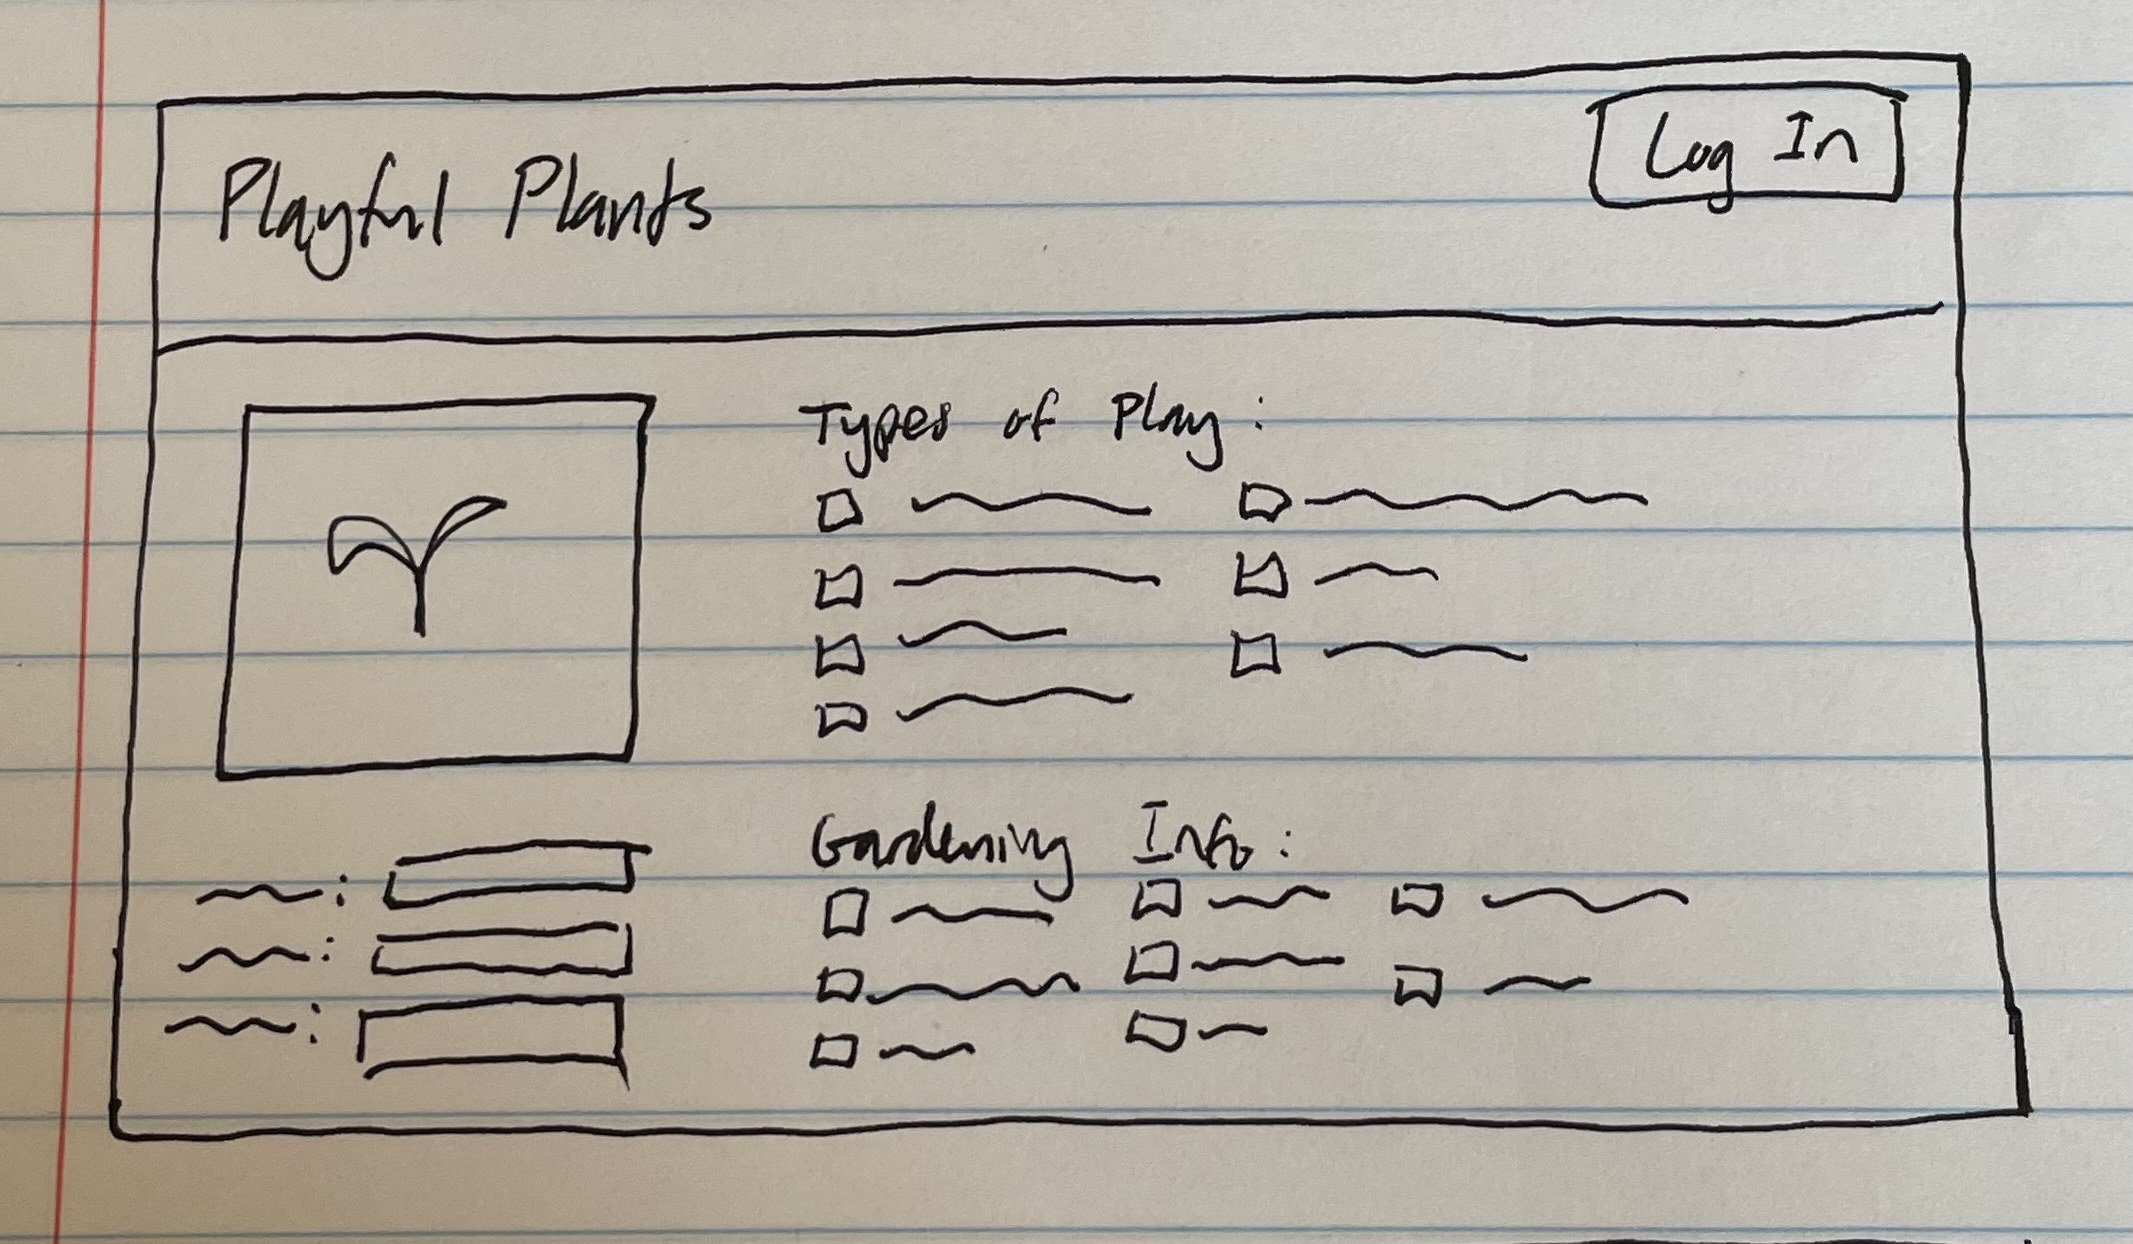 Playful Plants
Log In
Types of Play:
Gardening Info: